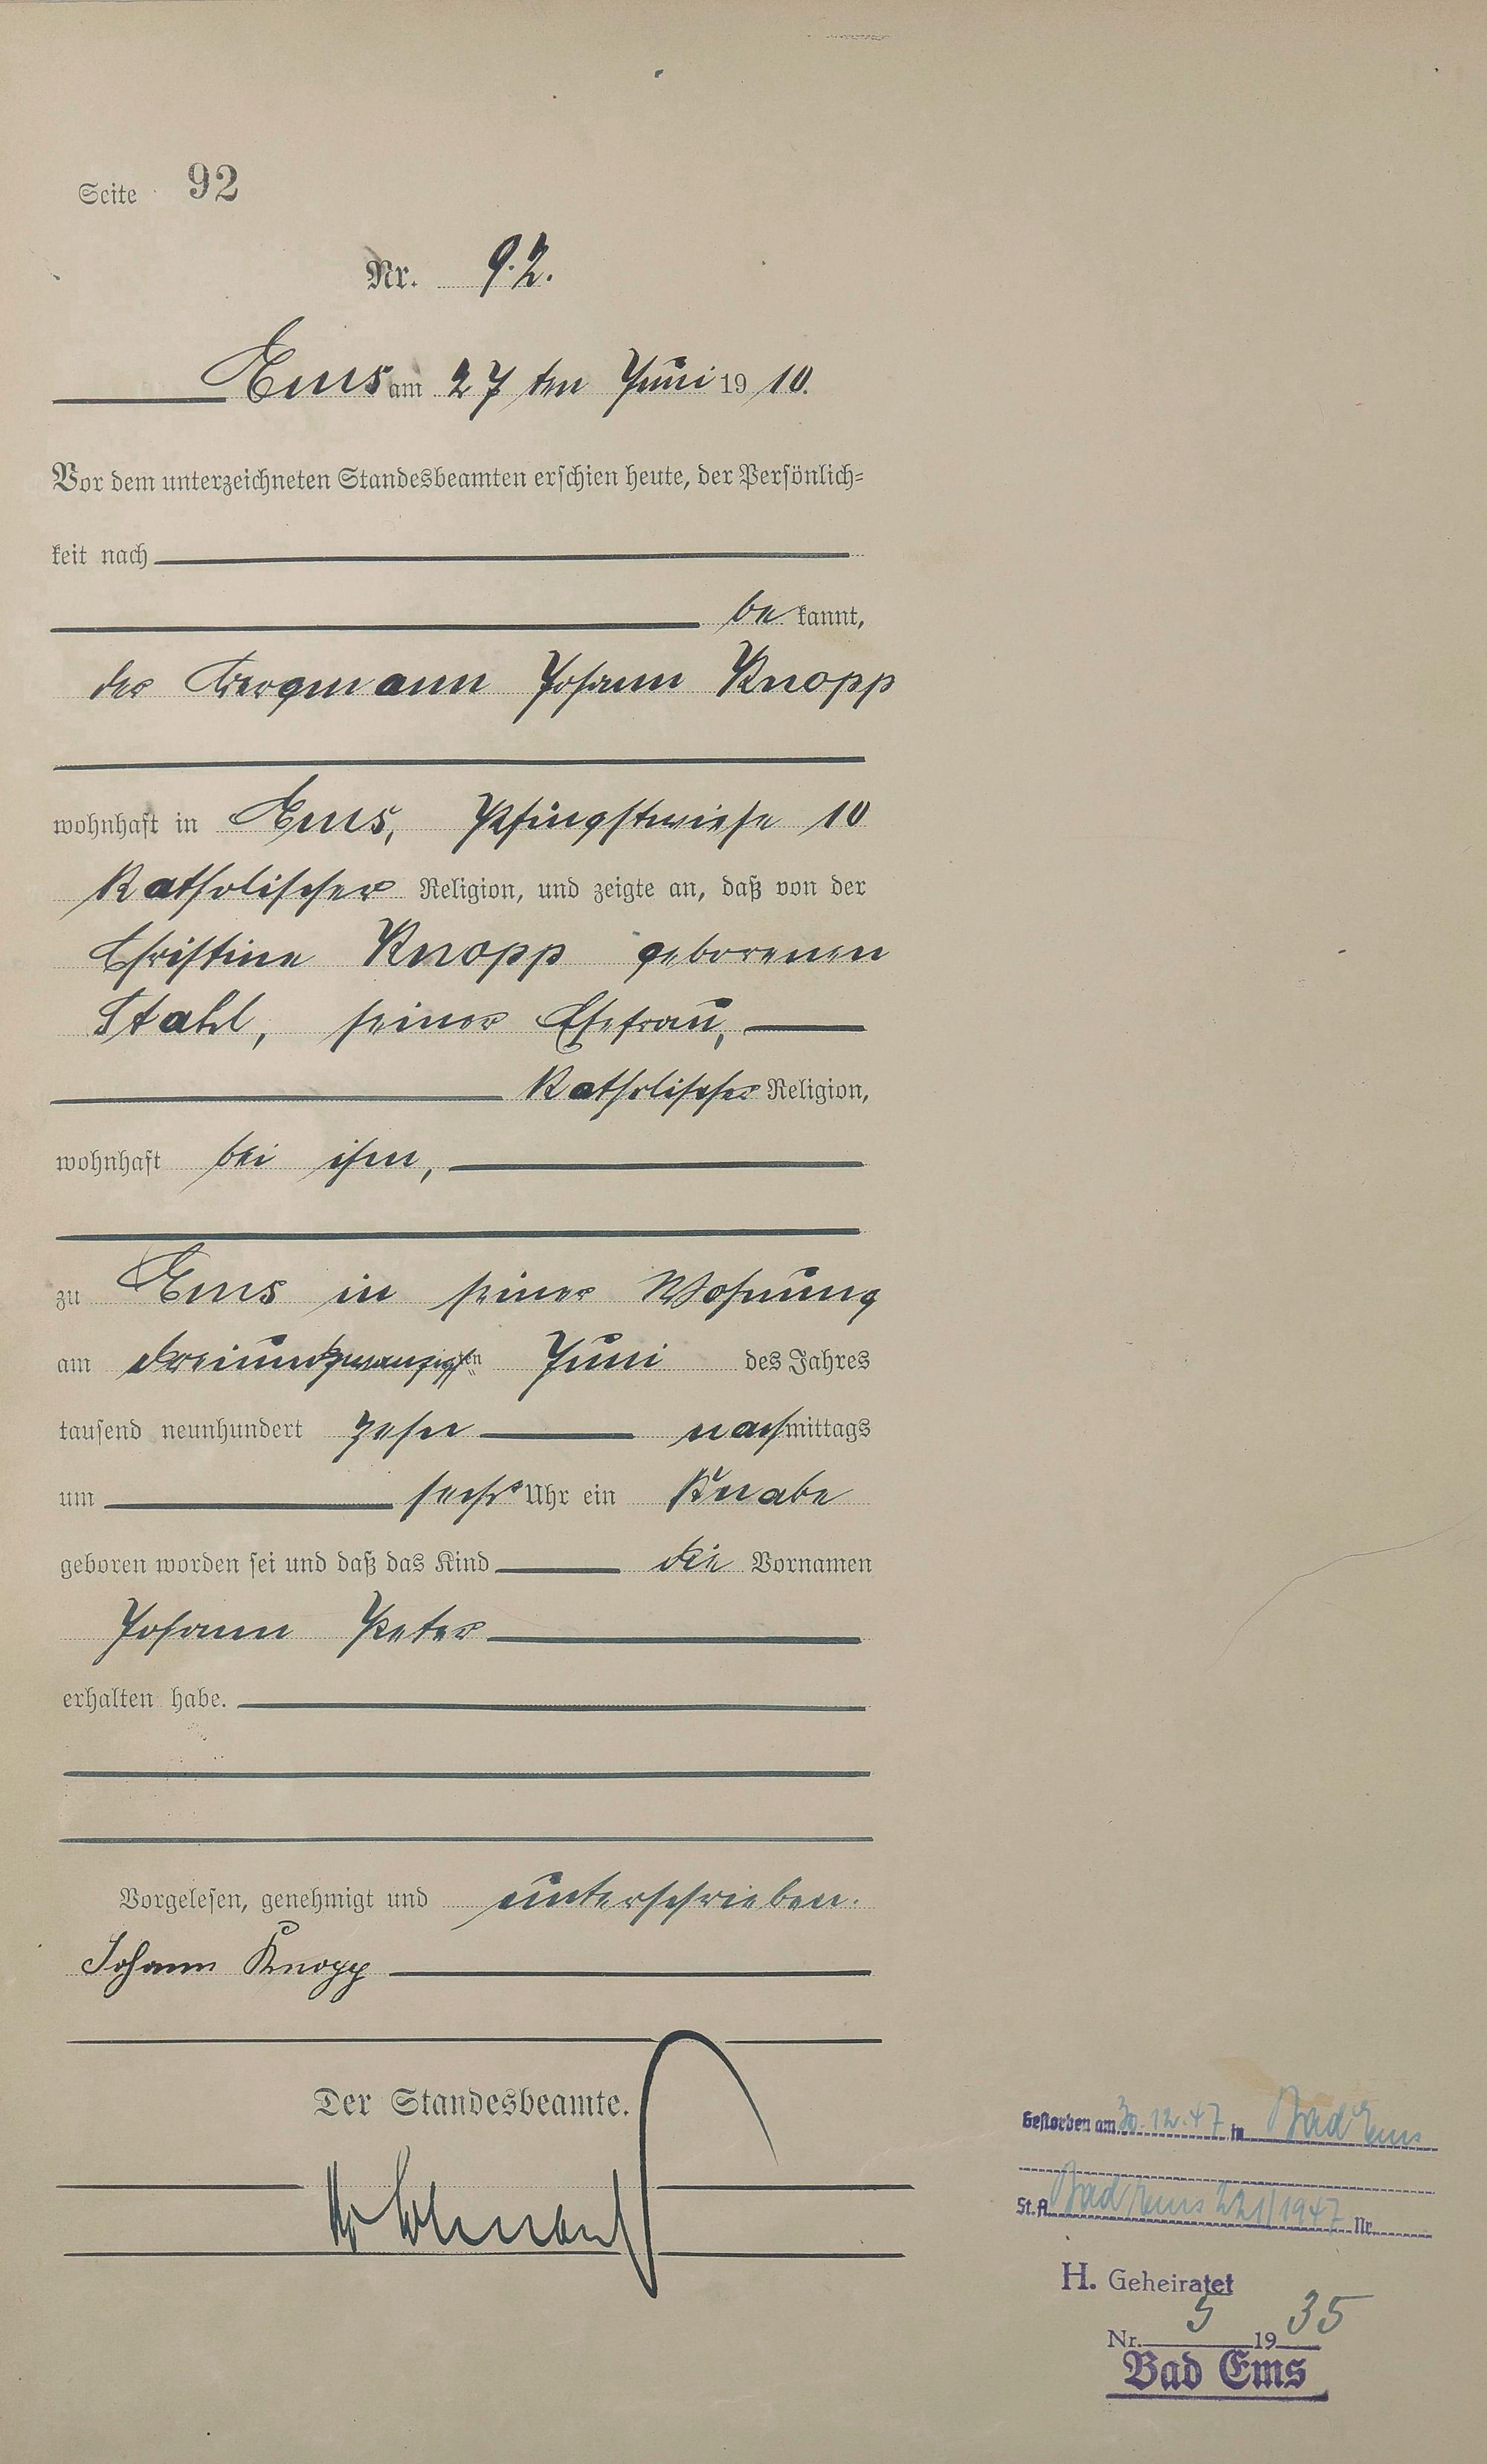 Seite 92
Nr. 92.
Ems am 27 ten Juni 19 10.
Vor dem unterzeichneten Standesbeamten erschien heute, der Persönlich=
keit nach
be kannt,
der Bergmann Johann Knopp
wohnhaft in Ems, Pfingstwiese 10
Katholischer Religion, und zeigte an, daß von der
Christine Knopp geborenen
Stahl, seiner Ehefrau,
Katholischer Religion,
wohnhaft bei ihm,
zu Ems in seiner Wohnung
am dreiundzwanzigsten Juni des Jahres
tausend neunhundert zehn nachmittags
um sechs Uhr ein Knabe
geboren worden sei und daß das Kind die Vornamen
Johann Peter
erhalten habe.
Vorgelesen, genehmigt und unterschrieben.
Johann Knopp
Der Standesbeamte.
Gestorben am 30.12.47 in Bad Ems
St.A. Bad Ems 221/1947 Nr.
H. Geheiratet
Nr. 5 19 35
Bad Ems